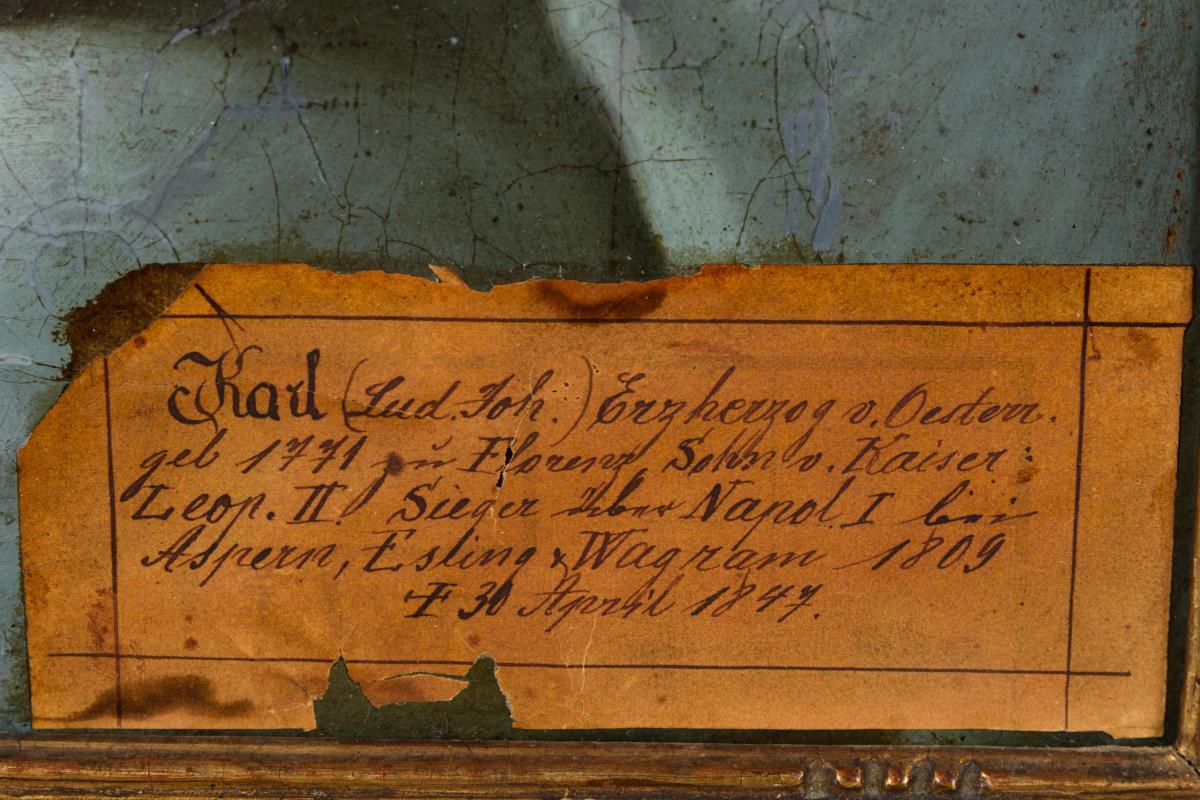 Karl (Lud. Joh.) Erzherzog v. Oesterr.
geb 1771 zu Florenz, Sohn v. Kaiser:
Leop. II. Sieger über Napol. I bei
Aspern, Esling & Wagram 1809
† 30 April 1847.